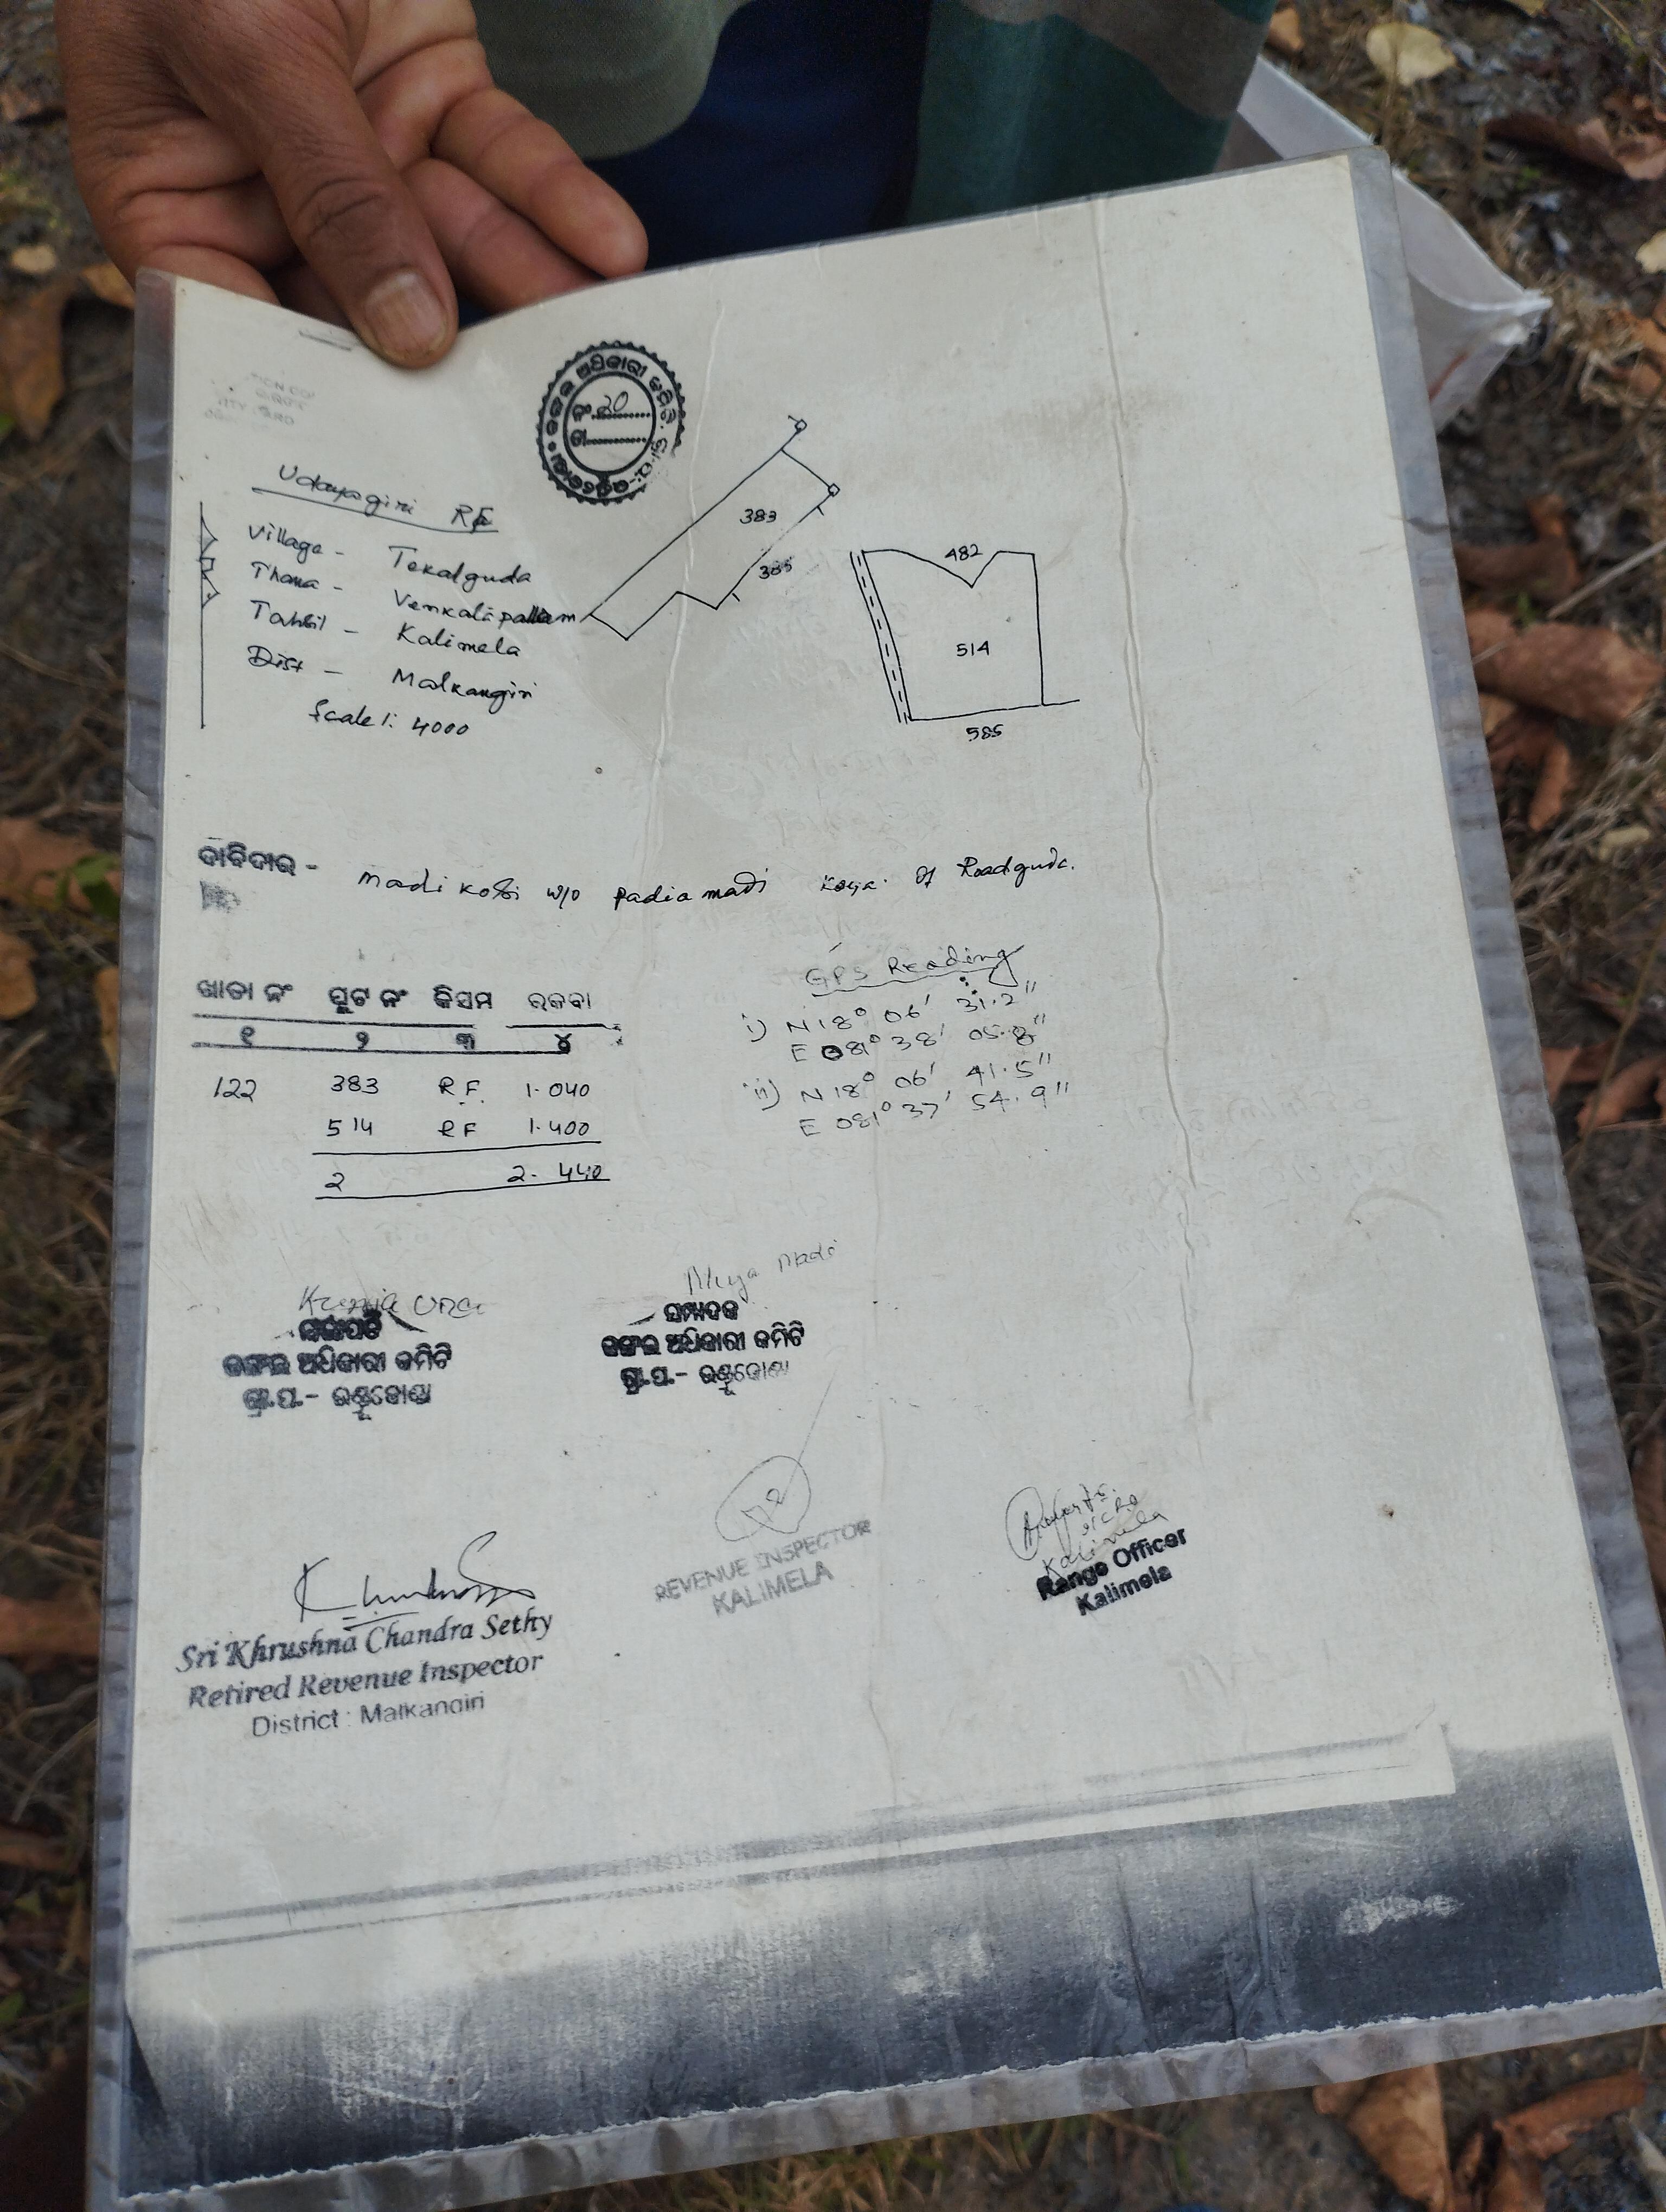 ଜଙ୍ଗଲ ଅଧିକାରୀ କମିଟି
ନଂ. 20
ତା
Udayagiri RF
Village - Tekalguda
Thana - Venkalapallam
Tahsil - Kalimela
Dist - Malkangiri
Scale 1: 4000
383
385
482
514
585
ଦାବିଦାର - Madi Kosi w/o Padia madi Koya. Of Roadguda.
ଖାତା ନଂ ପ୍ଲଟ ନଂ କିସମ ରକବା
୧ ୨ ୩ ୪
122 383 RF. 1.040
514 RF 1.400
2 2.440
GPS Reading
i) N 18° 06' 31.2"
E 081° 38' 05.8"
ii) N 18° 06' 41.5"
E 081° 37' 54.9"
ସଭାପତି
ଜଙ୍ଗଲ ଅଧିକାରୀ କମିଟି
ଗ୍ରା.ପ.-
Muya Madi
ସମ୍ପାଦକ
ଜଙ୍ଗଲ ଅଧିକାରୀ କମିଟି
ଗ୍ରା.ପ.-
Sri Khrushna Chandra Sethy
Retired Revenue Inspector
District : Malkangiri
REVENUE INSPECTOR
KALIMELA
Kalimela
Range Officer
Kalimela